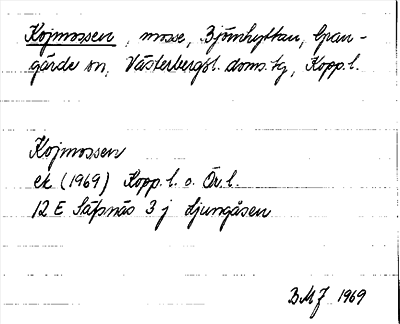 Kojmossen, mosse, Björnhyttan, Gran-
gärde sn, Västerbergsl. doms.hg, Kopp.l.
Kojmossen
ek (1969) Kopp.l. o. Ör.l.
12 E Säfsnäs 3 j Ljungåsen
BMJ 1969